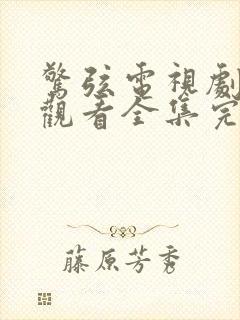 驚弦電視劇
觀看全集完
藤原芳秀